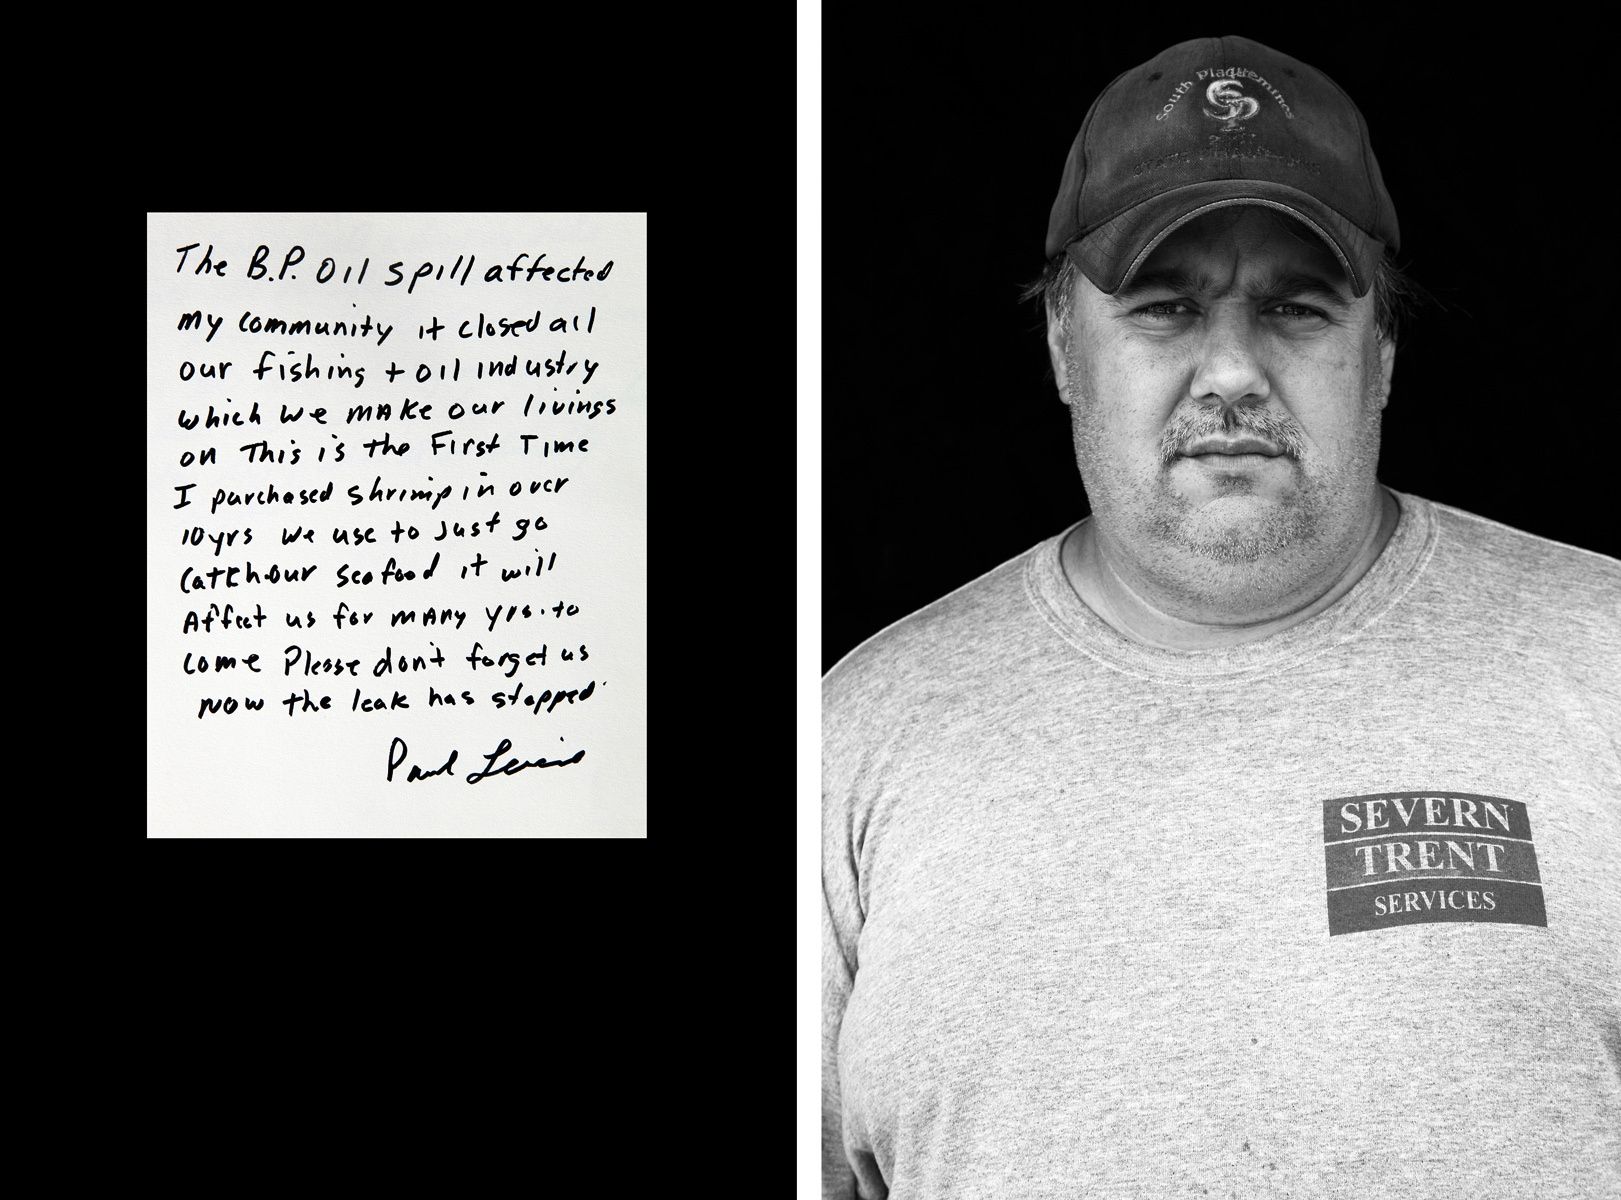 The B.P. Oil spill affected
my community it closed all
our fishing + oil industry
which we make our livings
on This is the First Time
I purchased shrimp in over
10yrs we use to Just go
Catch our seafood it will
Affect us for many yrs. to
come Please don't forget us
now the leak has stopped
Paul
South Plaquemines
SEVERN
TRENT
SERVICES